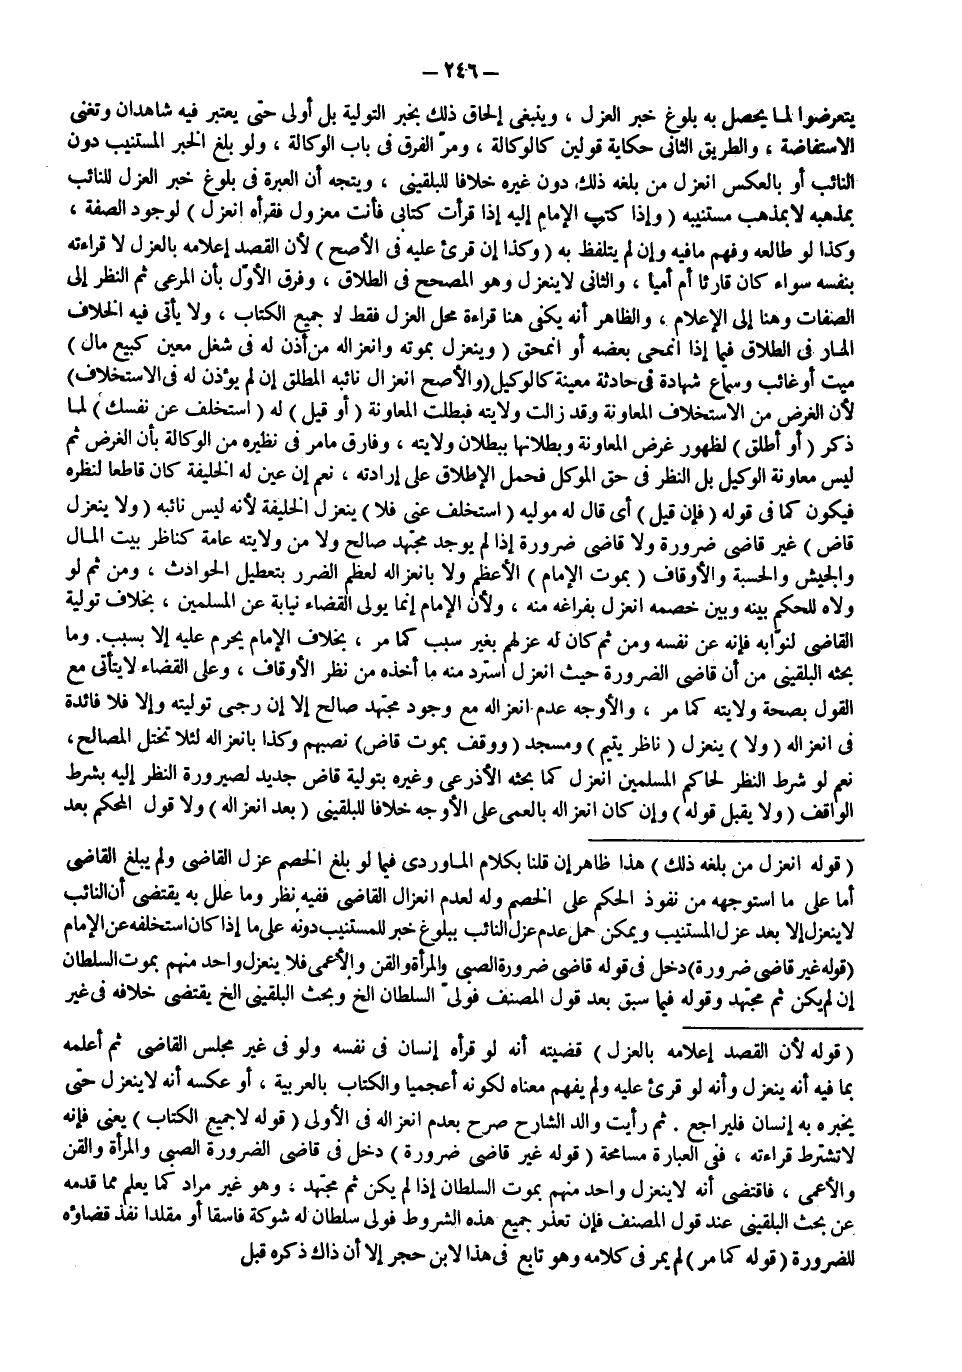 — ٢٤٦ —
يتعرضوا لما يحصل به بلوغ خبر العزل ، وينبغى إلحاق ذلك بخبر التولية بل أولى حتى يعتبر فيه شاهدان وتغنى
الاستفاضة ، والطريق الثانى حكاية قولين كالوكالة ، ومرّ الفرق فى باب الوكالة ، ولو بلغ الخبر المستنيب دون
النائب أو بالعكس انعزل من بلغه ذلك دون غيره خلافا للبلقينى ، ويتجه أن العبرة فى بلوغ خبر العزل للنائب
بمذهبه لا بمذهب مستنيبه ( وإذا كتب الإمام إليه إذا قرأت كتابى فأنت معزول فقرأه انعزل ) لوجود الصفة ،
وكذا لو طالعه وفهم مافيه وإن لم يتلفظ به ( وكذا إن قرئ عليه فى الأصح ) لأن القصد إعلامه بالعزل لا قراءته
بنفسه سواء كان قارئا أم أميا ، والثانى لاينعزل وهو المصحح فى الطلاق ، وفرق الأوّل بأن المرعى ثم النظر إلى
الصفات وهنا إلى الإعلام ، والظاهر أنه يكفى هنا قراءة محل العزل فقط لا جميع الكتاب ، ولا يأتى فيه الخلاف
المار فى الطلاق فيما إذا انمحى بعضه أو انمحق ( وينعزل بموته وانعزاله من أذن له فى شغل معين كبيع مال )
ميت أو غائب وسماع شهادة فى حادثة معينة كالوكيل (والأصح انعزال نائبه المطلق إن لم يؤذن له فى الاستخلاف)
لأن الغرض من الاستخلاف المعاونة وقد زالت ولايته فبطلت المعاونة ( أو قيل ) له ( استخلف عن نفسك ) لما
ذكر ( أو أطلق ) لظهور غرض المعاونة وبطلانها ببطلان ولايته ، وفارق مامر فى نظيره من الوكالة بأن الغرض ثم
ليس معاونة الوكيل بل النظر فى حق الموكل فحمل الإطلاق على إرادته ، نعم إن عين له الخليفة كان قاطعا لنظره
فيكون كما فى قوله ( فإن قيل ) أى قال له موليه ( استخلف عنى فلا ) ينعزل الخليفة لأنه ليس نائبه ( ولا ينعزل
قاض ) غير قاضى ضرورة ولا قاضى ضرورة إذا لم يوجد مجتهد صالح ولا من ولايته عامة كناظر بيت المال
والجيش والحسبة والأوقاف ( بموت الإمام ) الأعظم ولا بانعزاله لعظم الضرر بتعطيل الحوادث ، ومن ثم لو
ولاه للحكم بينه وبين خصمه انعزل بفراغه منه ، ولأن الإمام إنما يولى القضاء نيابة عن المسلمين ، بخلاف تولية
القاضى لنوّابه فإنه عن نفسه ومن ثم كان له عزلهم بغير سبب كما مر ، بخلاف الإمام يحرم عليه إلا بسبب. وما
بحثه البلقينى من أن قاضى الضرورة حيث انعزل استرد منه ما أخذه من نظر الأوقاف ، وعلى القضاء لايتأتى مع
القول بصحة ولايته كما مر ، والأوجه عدم انعزاله مع وجود مجتهد صالح إلا إن رجى توليته وإلا فلا فائدة
فى انعزاله ( ولا ) ينعزل ( ناظر يتيم ) ومسجد ( ووقف بموت قاض) نصبهم وكذا بانعزاله لئلا تختل المصالح،
نعم لو شرط النظر لحاكم المسلمين انعزل كما بحثه الأذرعى وغيره بتولية قاض جديد لصيرورة النظر إليه بشرط
الواقف ( ولا يقبل قوله ) وإن كان انعزاله بالعمى على الأوجه خلافا للبلقينى ( بعد انعزاله ) ولا قول المحكم بعد
( قوله انعزل من بلغه ذلك ) هذا ظاهر إن قلنا بكلام الماوردى فيما لو بلغ الخصم عزل القاضى ولم يبلغ القاضى
أما على ما استوجهه من نفوذ الحكم على الخصم وله لعدم انعزال القاضى ففيه نظر وما علل به يقتضى أن النائب
لاينعزل إلا بعد عزل المستنيب ويمكن حمل عدم عزل النائب ببلوغ خبر للمستنيب دونه على ما إذا كان استخلفه عن الإمام
(قوله غير قاضى ضرورة) دخل فى قوله قاضى ضرورة الصبى والمرأة والقن والأعمى فلا ينعزل واحد منهم بموت السلطان
إن لم يكن ثم مجتهد وقوله فيما سبق بعد قول المصنف فولى السلطان الخ وبحث البلقينى الخ يقتضى خلافه فى غير
( قوله لأن القصد إعلامه بالعزل ) قضيته أنه لو قرأه إنسان فى نفسه ولو فى غير مجلس القاضى ثم أعلمه
بما فيه أنه ينعزل وأنه لو قرئ عليه ولم يفهم معناه لكونه أعجميا والكتاب بالعربية ، أو عكسه أنه لاينعزل حتى
يخبره به إنسان فليراجع . ثم رأيت والد الشارح صرح بعدم انعزاله فى الأولى ( قوله لاجميع الكتاب ) يعنى فإنه
لاتشترط قراءته ، ففى العبارة مسامحة ( قوله غير قاضى ضرورة ) دخل فى قاضى الضرورة الصبى والمرأة والقن
والأعمى ، فاقتضى أنه لاينعزل واحد منهم بموت السلطان إذا لم يكن ثم مجتهد ، وهو غير مراد كما يعلم مما قدمه
عن بحث البلقينى عند قول المصنف فإن تعذر جميع هذه الشروط فولى سلطان له شوكة فاسقا أو مقلدا نفذ قضاؤه
للضرورة ( قوله كما مر ) لم يمر فى كلامه وهو تابع فى هذا لابن حجر إلا أن ذاك ذكره قبل